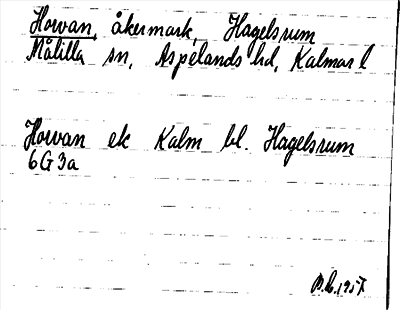 Horvan, åkermark, Hagelsrum
Målilla sn, Aspelands hd, Kalmar l
Horvan ek Kalm bl. Hagelsrum
6G3a
1957